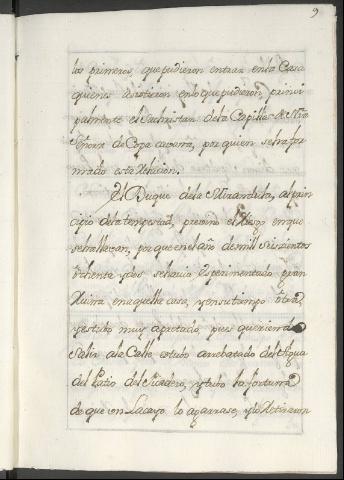 9
los primeros que pudieron entrar en la Casa
quienes asistieron en lo que pudieron, princi
palmente el Sachristan de la Capilla de Ntra
Señora de Copacavana, por quien se ha for
mado esta Relacion.
El Duque de la Mirandula, al prin
cipio de la tempestad, previno el Riesgo en que
se hallavan, por que en el año de mil Seiscientos
ochenta y dos se havia experimentado gran
Ruina en aquella casa, y en su tiempo otra,
y estubo muy apretado, pues queriendo
Salir a la Calle estubo arrebatado del Agua
del Patio del Picadero, y tubo la fortuna
de que un Lacayo lo agarrase, y lo Retiraron